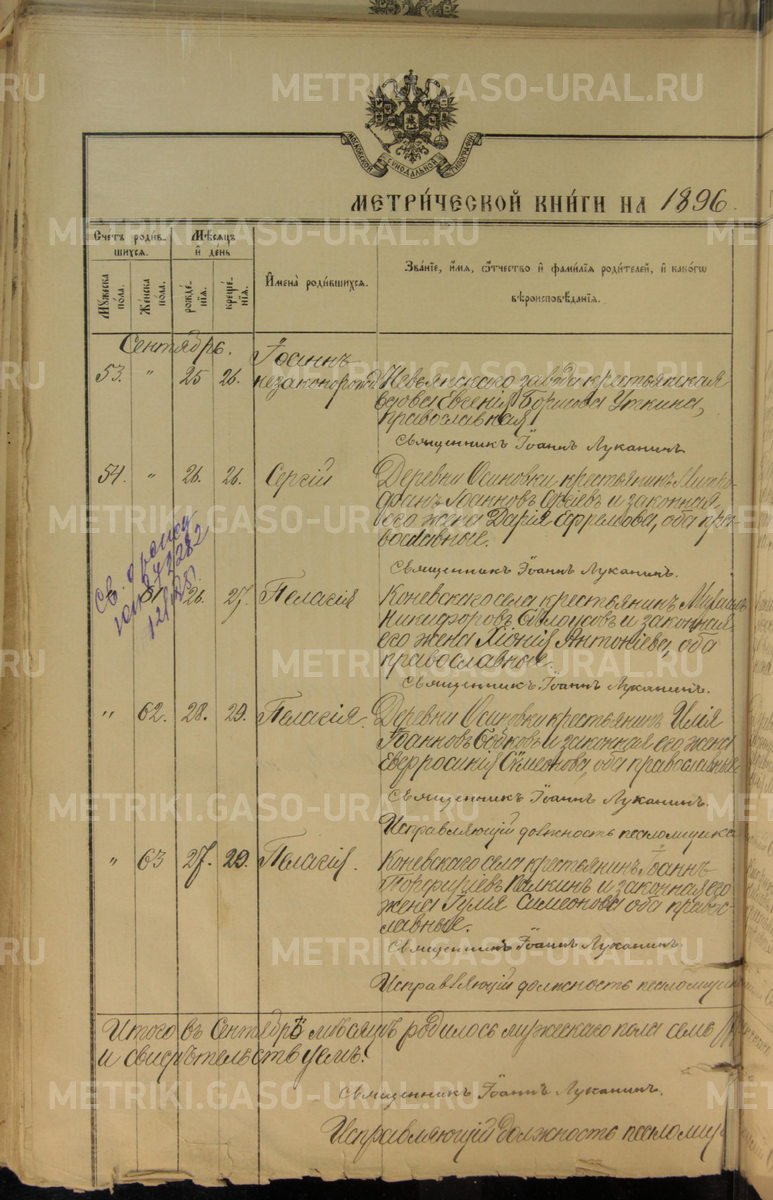 METRIKI.GASO-URAL.RU
МОСКОВСКОЙ СѴНОДАЛЬНОЙ ТИПОГРАФІИ
МЕТРИ́ЧЕСКОЙ КНИ́ГИ НА 1896.
Счетъ роди́в-
шихся.
Мѣсяцъ
и҆ де́нь
Мꙋжеска по́ла.
Же́нска по́ла.
рожде́-
нїѧ.
креще́-
нїѧ.
И҆мена̀ роди́вшихся.
Зва́нїе, и҆́мѧ, ѻ҆́тчество и҆ фами́лїѧ роди́телей, и҆ како́гѡ
вѣроисповѣ́данїѧ.
Сентябрь.
53. " 25 26. Іоаннъ
незаконорожд.
Невьянскаго завода крестьянская
вдова Евгенія Борисова Уткина,
православная
Священникъ Іоаннъ Луканинъ
54. " 26. 26. Сергій
Деревни Осиновки крестьянинъ Митро-
фанъ Іоанновъ и законная
его жена Дарія Ефремова, оба пра-
вославные.
Священникъ Іоаннъ Луканинъ.
Св. о
26. 27. Пелагія
Коневскаго села крестьянинъ Михаилъ
Никифоровъ Бѣлоусовъ и законная
его жена Хіонія Антоніева, оба
православные.
Священникъ Іоаннъ Луканинъ.
" 62. 28. 29. Пелагія.
Деревни Осиновки крестьянинъ Илія
Іоанновъ и законная его жена
Евдросинія Сѵмеонова, оба православные
Священникъ Іоаннъ Луканинъ.
Исправляющій должность псаломщика
" 63 27. 29. Пелагія.
Коневскаго села крестьянинъ Іоаннъ
Порфиріевъ и законная его
жена Симеонова оба право-
славные.
Священникъ Іоаннъ Луканинъ.
Исправляющій должность псаломщи
Итого въ Сентябрѣ мѣсяцѣ родилось мужескаго пола семь
и свидѣтельствуемъ:
Священникъ Іоаннъ Луканинъ.
Исправляющій должность псаломщ